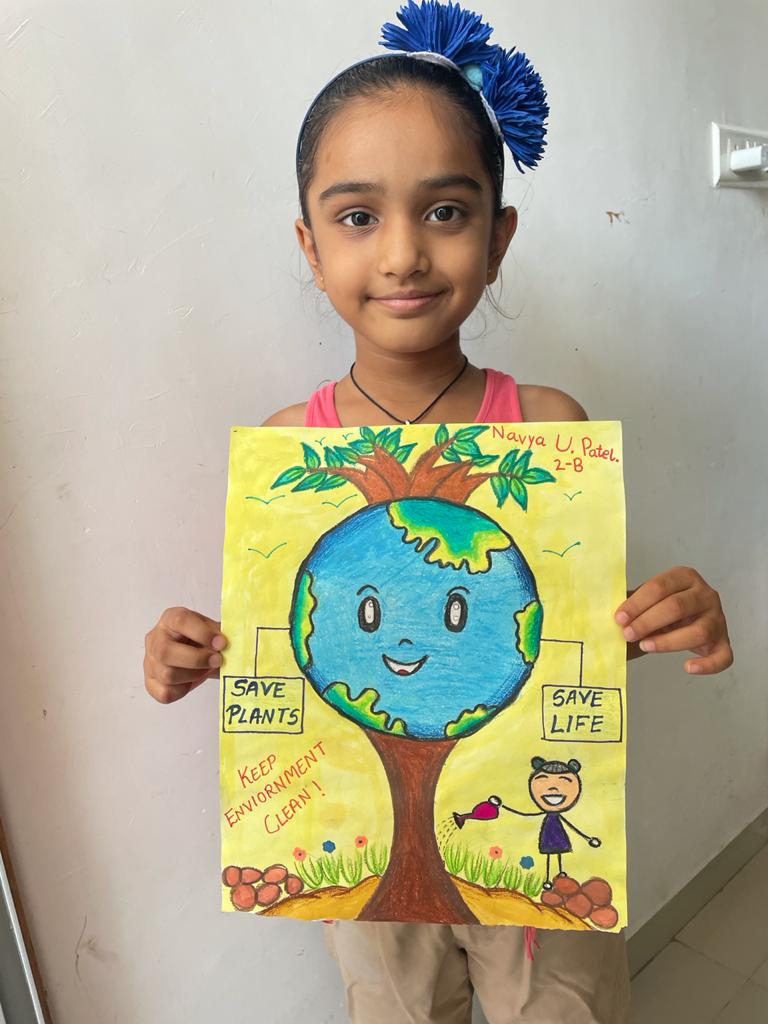 Navya U. Patel.
2-B
SAVE
PLANTS
SAVE
LIFE
KEEP
ENVIORNMENT
CLEAN!